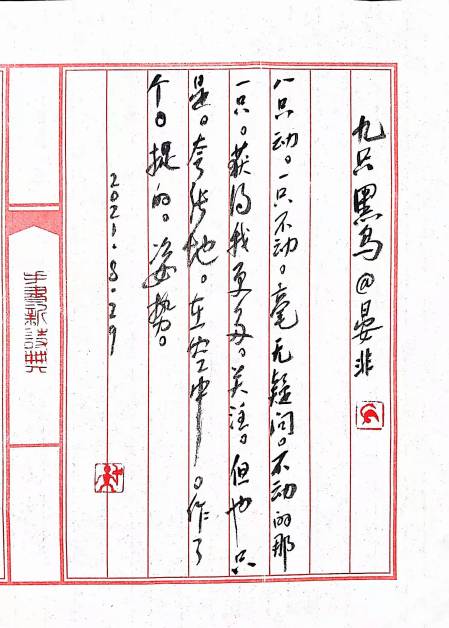 九只黑鸟@晏非
八只动。一只不动。毫无疑问。不动的那
一只。获得我更多。关注。但也只
是。夸张地。在空中。作了
个。提的。姿势。
2021.8.29
手书新诗典